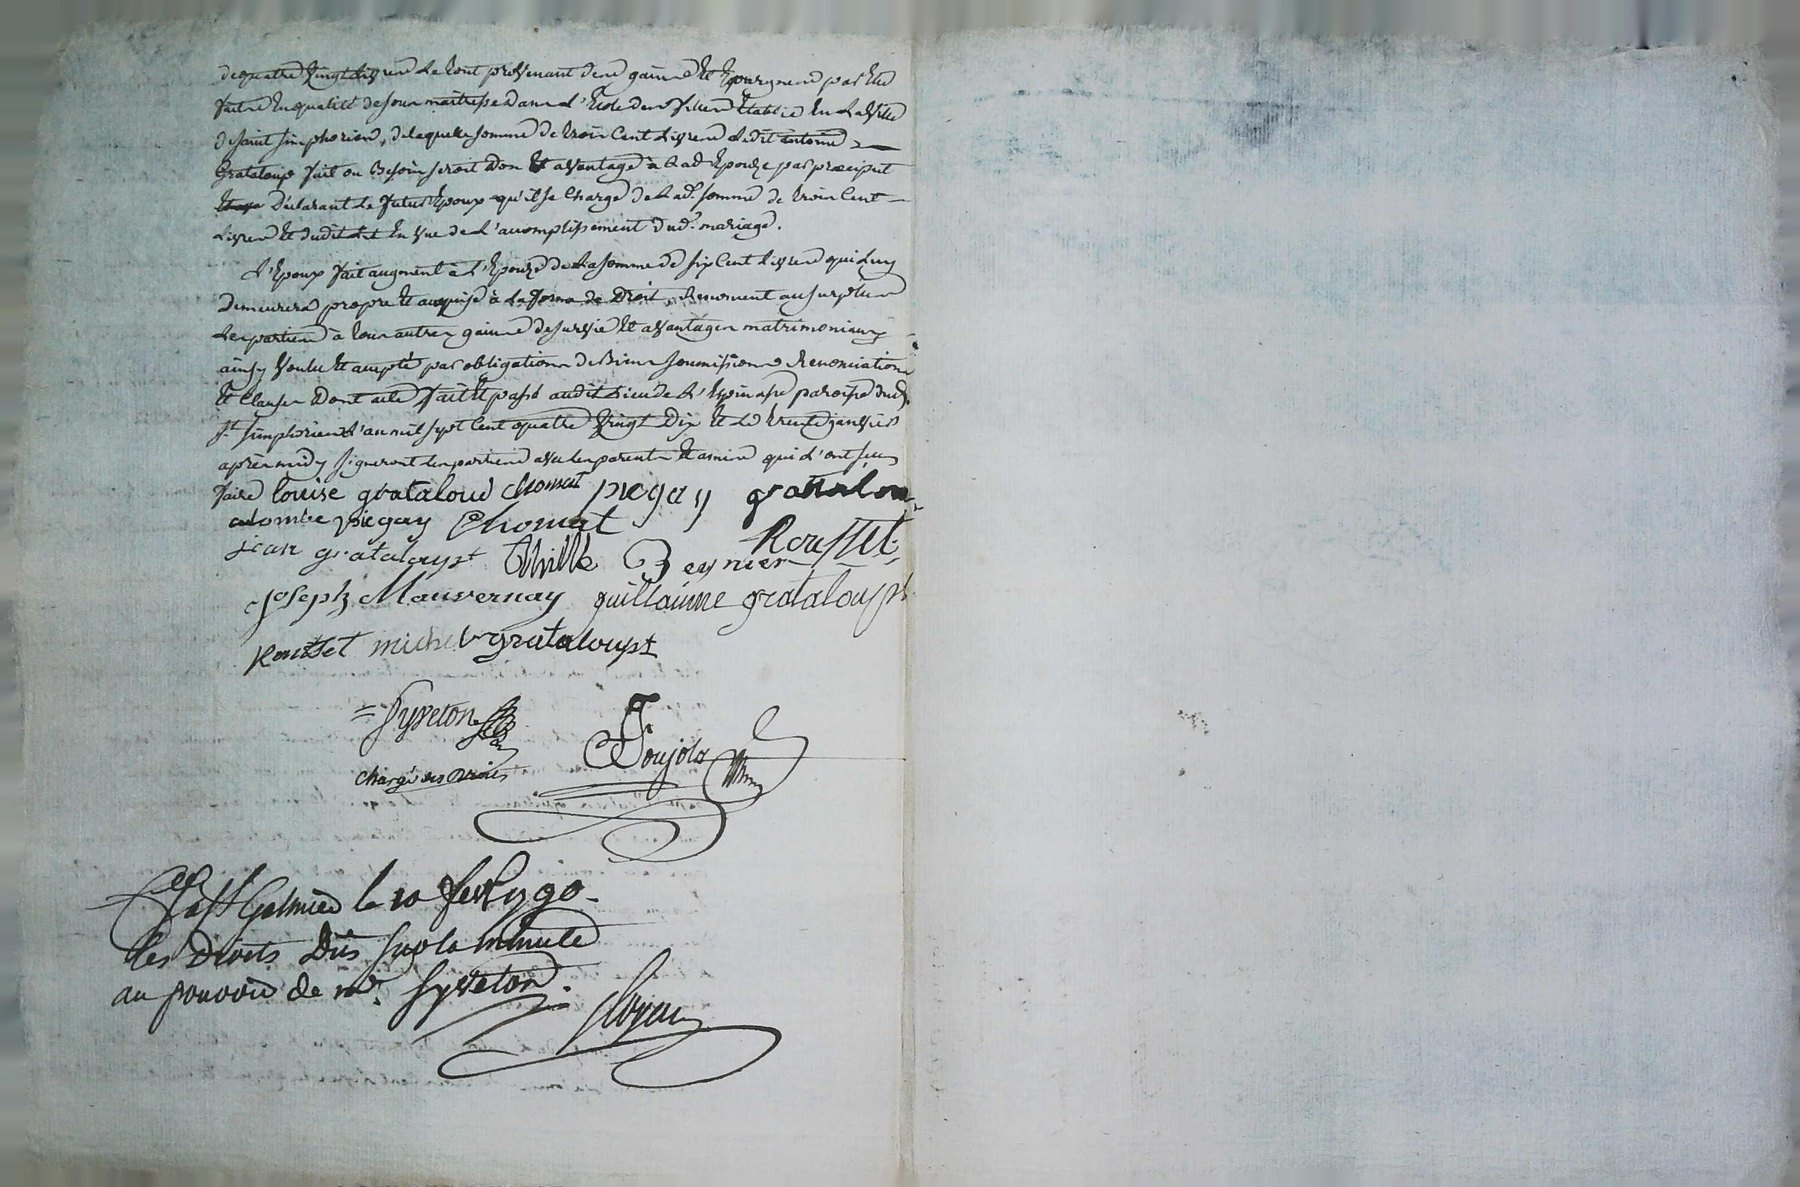 de quatre vingt livres le tout provenant de ses gains et Epargnes par Elle
faite En qualité de sour maitresse dans l'Ecole des filles Etablie En la ville
de saint simphorien, de laquelle somme de trois Cent Livres ledit antoine
Grataloup fait ou Besoin seroit don Et avantage à lad Epouse par preciput
déclarant le futur Epoux qu'il se Charge de lad. somme de trois Cent
Livres Et dudit Lit En vue de l'accomplissement dud. mariage.
L'Epoux fait augment à l'Epouze de la somme de six Cent Livres qui luy
demeurera propre Et acquise à la forme de Droit, Renoncent au surplus
les parties à tous autres gains de survie Et avantages matrimoniaux
ainsy voulu Et accepté par obligation de Biens soumissions Renonciations
Et Clauses dont acte fait Et passé audit Lieu de L'Epinasse paroisse dud.
St. simphorien L'an mil sept Cent quatre vingt Dix Et le trente janvier
après midy signeront les parties avec les parents Et amis qui l'ont sceu
faire louise grataloud chomat piegay grattalou
colombe piegay Chomat
jean grataloupt Beynier Rousset
Joseph Mauvernay guillaume grataloupt
Rousset michel grataloupt
Syveton Poujola
chargé des droits
Cé à St Galmier le 10 fer 1790
les droits Dus sur la minute
au pouvoir de Me. Syveton.